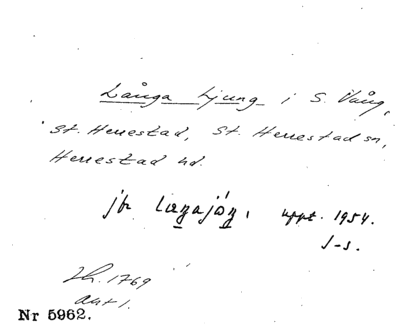 Långa Ljung i S. Vång,
St. Herrestad, St. Herrestad sn,
Herrestad hd.
jfr laŋajöŋ, uppt. 1954.
J-s.
Lh. 1769
akt 1.
Nr 5962.